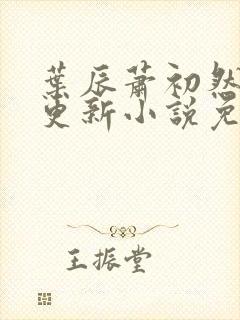 葉辰蕭初然
更新小說免
王振堂